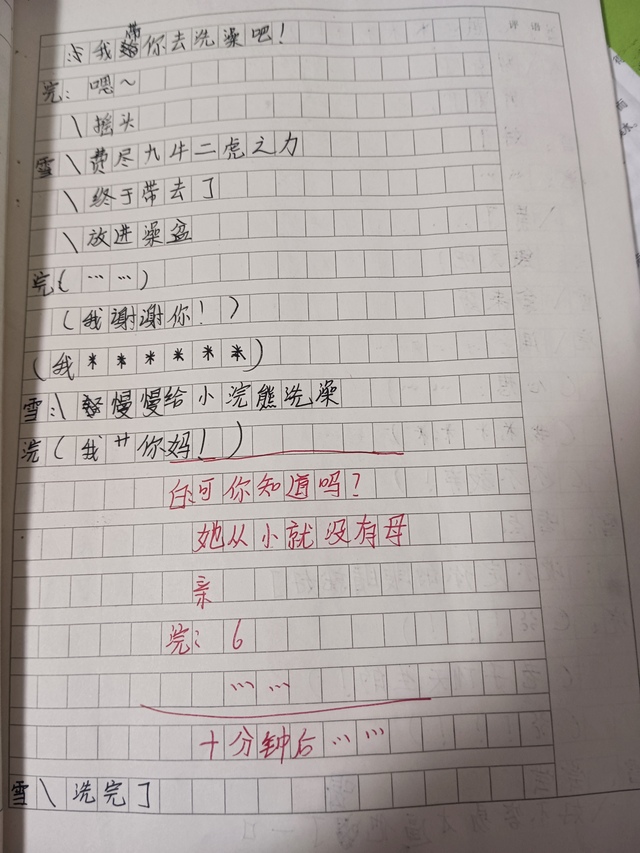 评语
:我带你去洗澡吧!
浣:嗯~
\摇头
雪\费尽九牛二虎之力
\终于带去了
\放进澡盆
浣(……)
(我谢谢你!)
(我******)
雪:\慢慢给小浣熊洗澡
浣(我艹你妈!)
白:可你知道吗?
她从小就没有母
亲
浣:6
……
十分钟后……
雪\洗完了